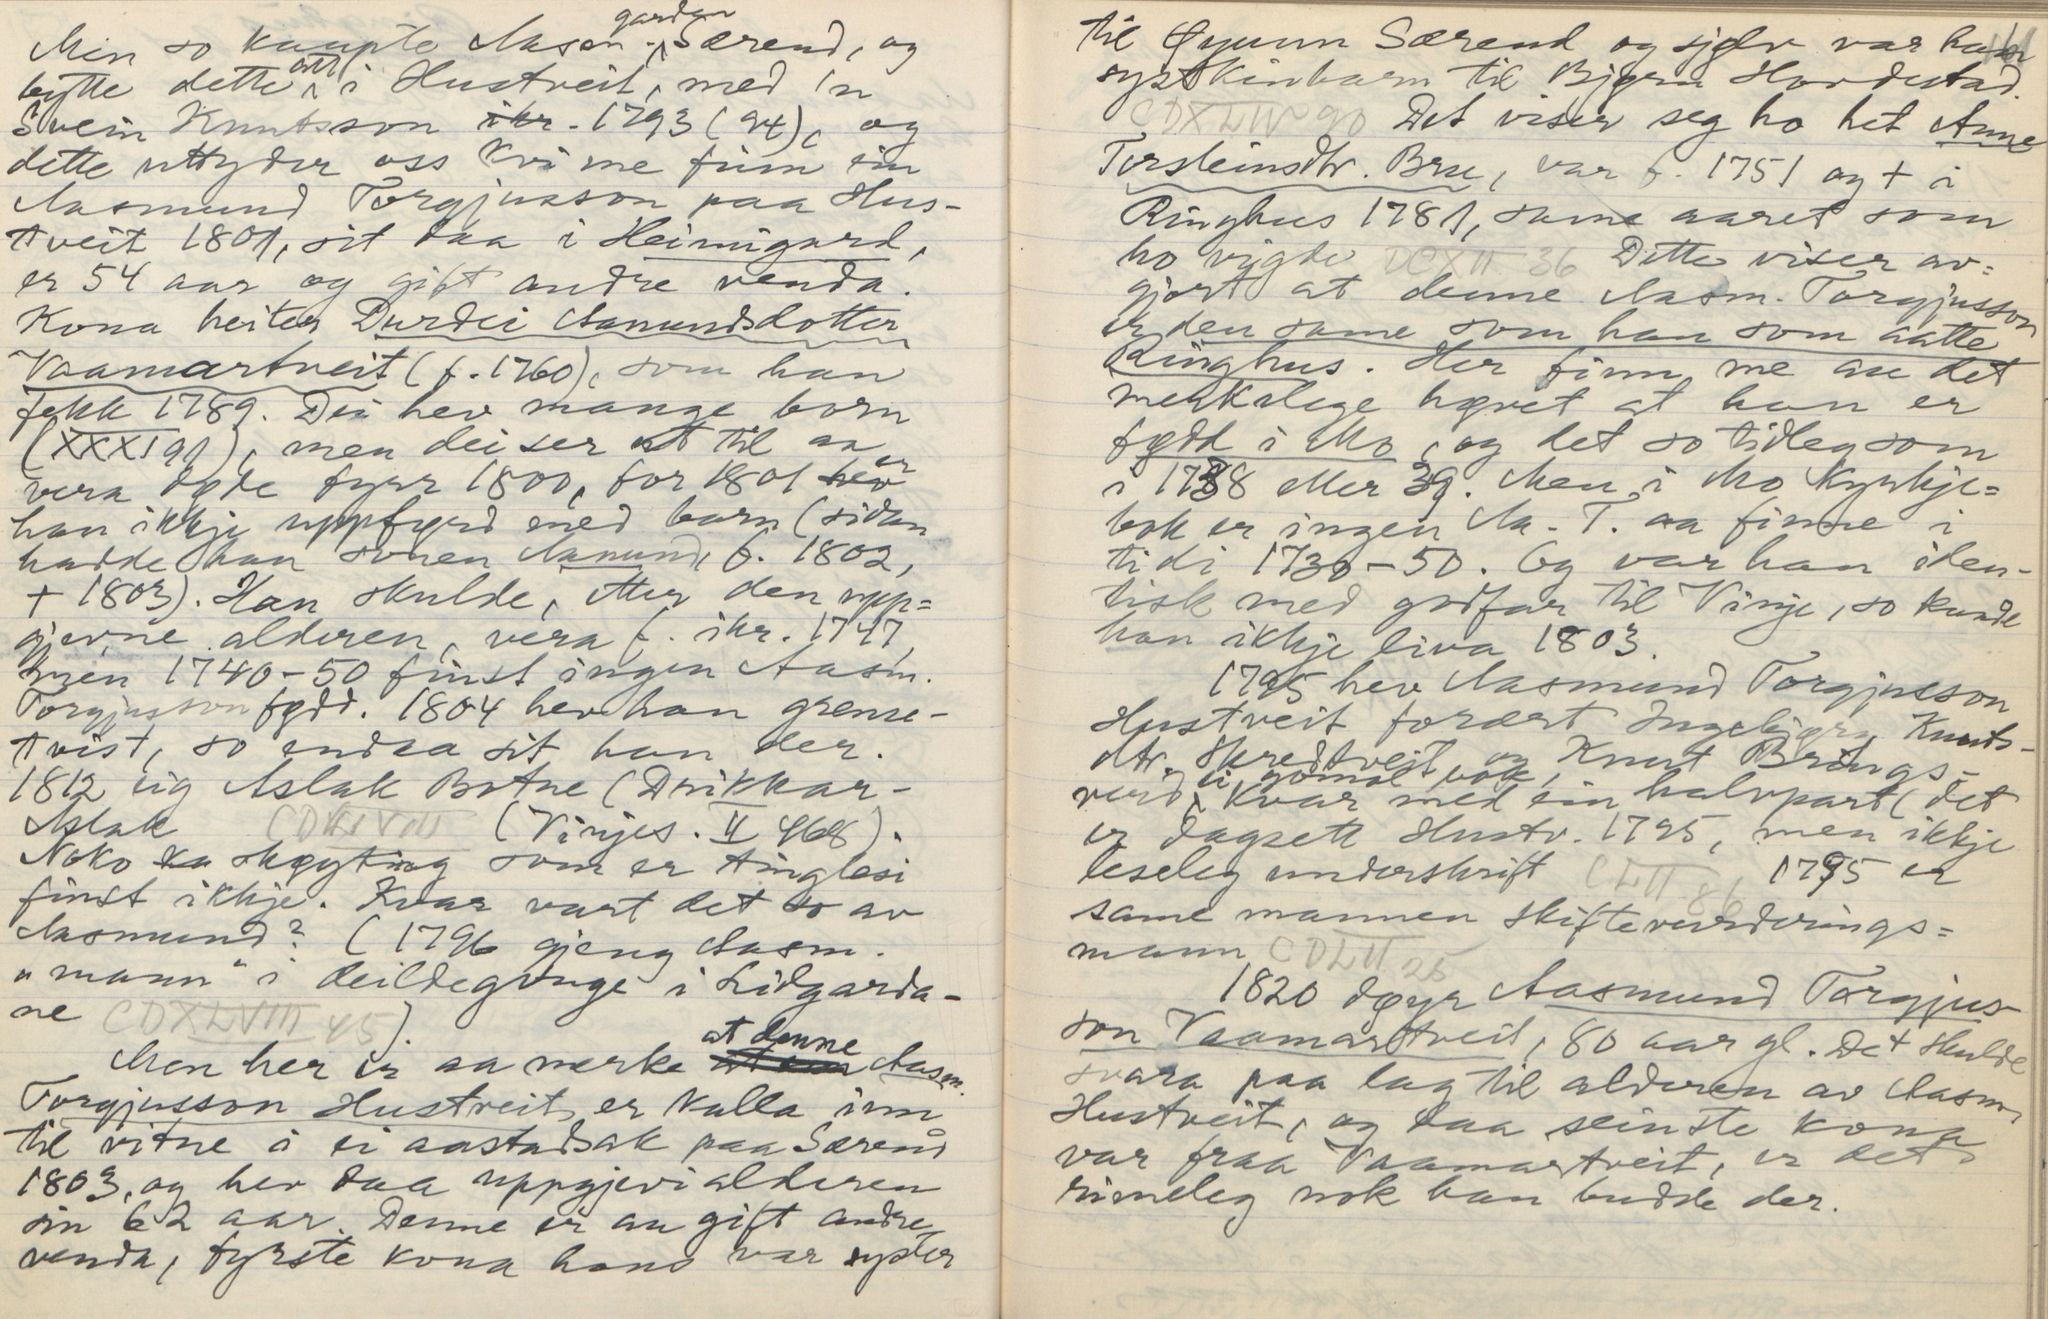 Men so kaupte Aasm. garden Særend, og
bytte dette att i Hustveit, med 'n
Svein Knutsson ikr. 1793 (94), og
dette uttyder oss kvi me finn ein
Aasmund Torgjusson paa Hus-
tveit 1801, sit daa i Heimigard,
er 54 aar og gift andre venda.
Kona heiter Durdei Aanundsdotter
Vaamartveit (f. 1760), som han
fekk 1789. Dei hev mange born
(XXXI 91), men dei ser ut til aa
vera døde fyrr 1800, for 1801 hev er
han ikkje uppførd med born (sidan
hadde han sonen Aanund, f. 1802,
+ 1803). Han skulde, etter den upp=
gjevne alderen, vera f. ikr. 1747,
men 1740-50 finst ingen Aasm.
Torgjusson fødd. 1804 hev han grense-
tvist, so endaa sit han der.
1812 eig Aslak Botne (Drikkar-
Aslak CDXLVIII (Vinjes. II 468).
Noko ka skøyting som er tinglesi
finst ikkje. Kvar vart det so av
Aasmund? (1796 gjeng Aasm.
"mann" i deildegonge i Lidgarda-
ne CDXLVIII 45).
Men her er aa merke at denne Aasm.
Torgjusson Hustveit er kalla inn
til vitne i ei aastadsak paa Særend
1803, og hev daa uppgjevi alderen
sin 62 aar. Denne er au gift andre
venda, fyrste kona hans var syster
til Øyunn Særend og sjølv var han
syskinbarn til Bjørn Hovdestad.
CDXLIV 90 Det viser seg ho het Anne
Torsteinsdtr. Bru, var f. 1751 og + i
Ringhus 1781, same aaret som
ho vigde DCXII 36 Dette viser av=
gjort at denne Aasm. Torgjusson
er den same som han som aatte
Ringhus. Her finn me au det
merkelege høvet at han er
fødd i Mo, og det so tidleg som
i 1738 eller 39. Men i Mo kyrkje=
bok er ingen Aa. T. aa finne i
tidi 1730-50. Og var han iden-
tisk med godfar til Vinje, so kunde
han ikkje liva 1803.
1795 hev Aasmund Torgjusson
Hustveit forært Ingebjørg Knuts-
dtr. Skredtveit og Knut Brings-
verd, ei gomol bok, kvar med ein halvpart (det
er dagsett Hustv. 1795, men ikkje
leseleg underskrift CLII 86 1795 er
same mannen skiftevurderings=
mann CDLII 25
1820 døyr Aasmund Torgjus-
son Vaamartveit, 80 aar gl. Det skulde
svara paa lag til alderen av Aasm.
Hustveit, og daa seinste kona
var fraa Vaamartveit, er det
rimeleg nok han budde der.